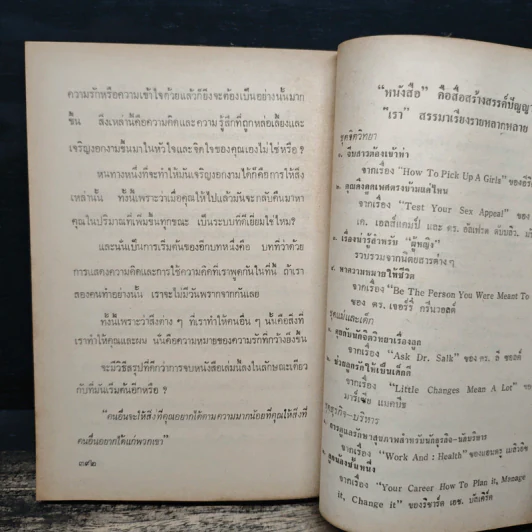 ความรักหรือความเข้าใจด้วยแล้วก็ยิ่งจะต้องเป็นอย่างนั้นมาก
ขึ้น สิ่งเหล่านี้คือความคิดและความรู้สึกที่ถูกหล่อเลี้ยงและ
เจริญงอกงามขึ้นมาในหัวใจและจิตใจของคุณเองไม่ใช่หรือ ?
หนทางหนึ่งที่จะทำให้มันเจริญงอกงามได้ก็คือการให้สิ่ง
เหล่านั้น ทั้งนี้เพราะว่าเมื่อคุณให้ไปแล้วมันจะกลับคืนมาหา
คุณในปริมาณที่เพิ่มขึ้นทุกขณะ เป็นระบบที่ดีเยี่ยมใช่ไหม?
และนั่นเป็นการเริ่มต้นของอีกบทหนึ่งคือ บทที่ว่าด้วย
การแสดงความคิดและการใช้ความคิดที่เราพูดกันในที่นี้ ถ้าเรา
สองคนทำอย่างนั้น เราจะไม่มีวันพรากจากกันเลย
ทั้งนี้เพราะว่าสิ่งต่าง ๆ ที่เราทำให้คนอื่น ๆ นั้นคือสิ่งที่
เราทำให้คุณและผม นั่นคือความหมายของความรักที่กว้างยิ่งขึ้น
จะมีวิธีสรุปที่ดีกว่าการจบหนังสือเล่มนี้ลงในลักษณะเดียว
กับที่มันเริ่มต้นอีกหรือ ?
“คนอื่นจะให้สิ่งที่คุณอยากได้ตามความมากน้อยที่คุณให้สิ่งที่
คนอื่นอยากได้แก่พวกเขา”
๓๙๒
“หนังสือ” คือสื่อสร้างสรรค์ปัญญา
"เรา" สรรมาเรียงรายหลากหลาย
ชุดจิตวิทยา
จีบสาวต้องเข้าท่า
จากเรื่อง "How To Pick Up A Girls" ของ
คุณดึงดูดเพศตรงข้ามแค่ไหน
จากเรื่อง "Test Your Sex Appeal" ของ
เค. เอลสื่อคมป์ และ ดร.
เรื่องน่ารู้สำหรับ "ผู้หญิง"
รวบรวมจากนิตยสารต่างๆ
หาความหมายให้ชีวิต
จากเรื่อง "Be The Person You Were Meant To
ของ ดร. เจอร์รี่ กรีนวอลด์
ชุดแม่และเด็ก
จากเรื่อง "Ask Dr. Salk" ของ ดร. ลี ซอลค์
ช่วยลูกรักให้เป็นเด็กดี
จากเรื่อง "Little Changes Mean A Lot" ของ
ชุดธุรกิจ-บริหาร
การดูแลรักษาสุขภาพสำหรับนักธุรกิจ-นักบริหาร
จากเรื่อง "Work And : Health"
จากเรื่อง "Your Career How To Plan it, Manage
it, Change it" ของริชาร์ด เอช. บัสเคิร์ค